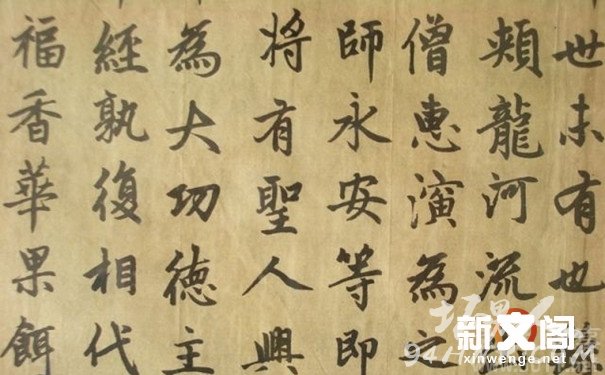 世未有也
頰龍河流
僧惠演為之
師永安等即
将有聖人興
為大功德主
經孰復相代
福香華果餌
新文阁
xinwenge.net